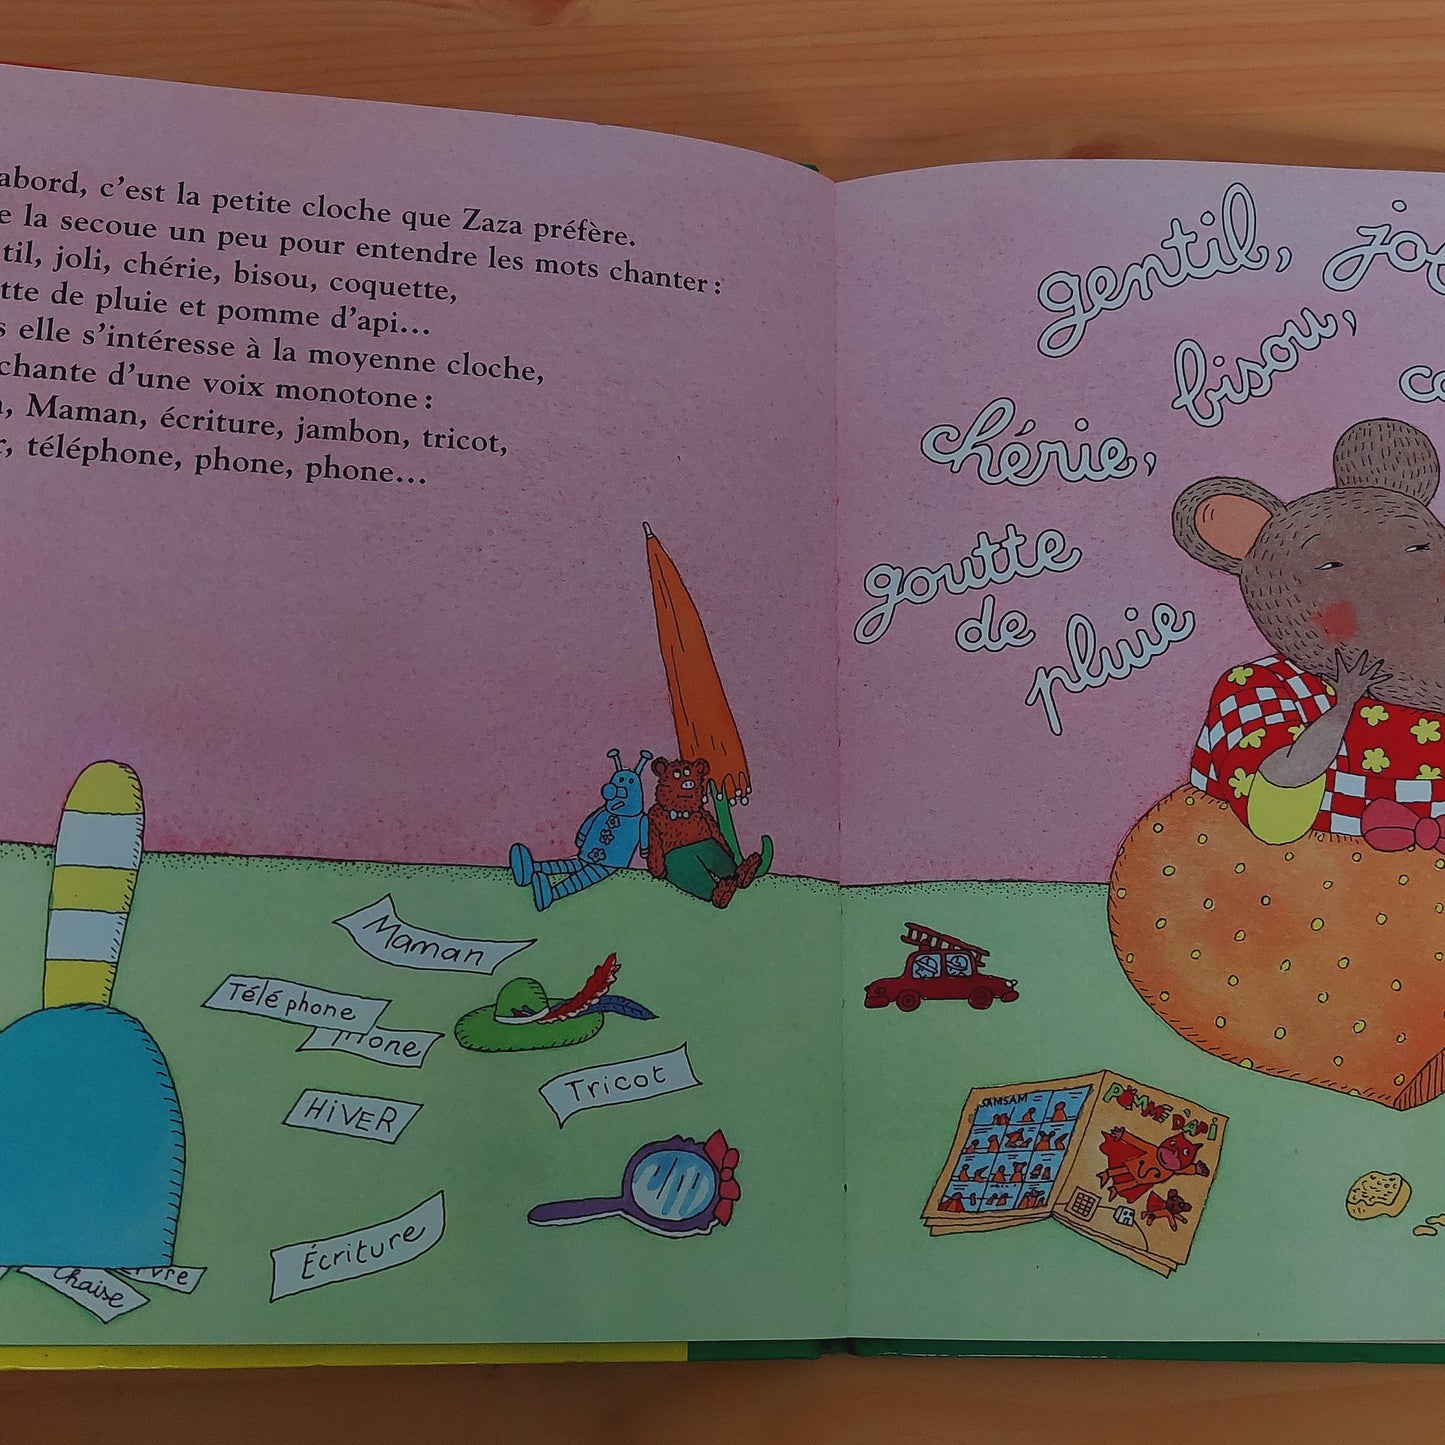 abord, c'est la petite cloche que Zaza préfère.
e la secoue un peu pour entendre les mots chanter :
til, joli, chérie, bisou, coquette,
tte de pluie et pomme d'api...
s elle s'intéresse à la moyenne cloche,
chante d'une voix monotone :
, Maman, écriture, jambon, tricot,
r, téléphone, phone, phone...
Maman
Téléphone
Phone
HiVER
Tricot
Écriture
Chaise
gentil, jo
bisou,
co
chérie,
goutte
de
pluie
SAMSAM
POMME D'API